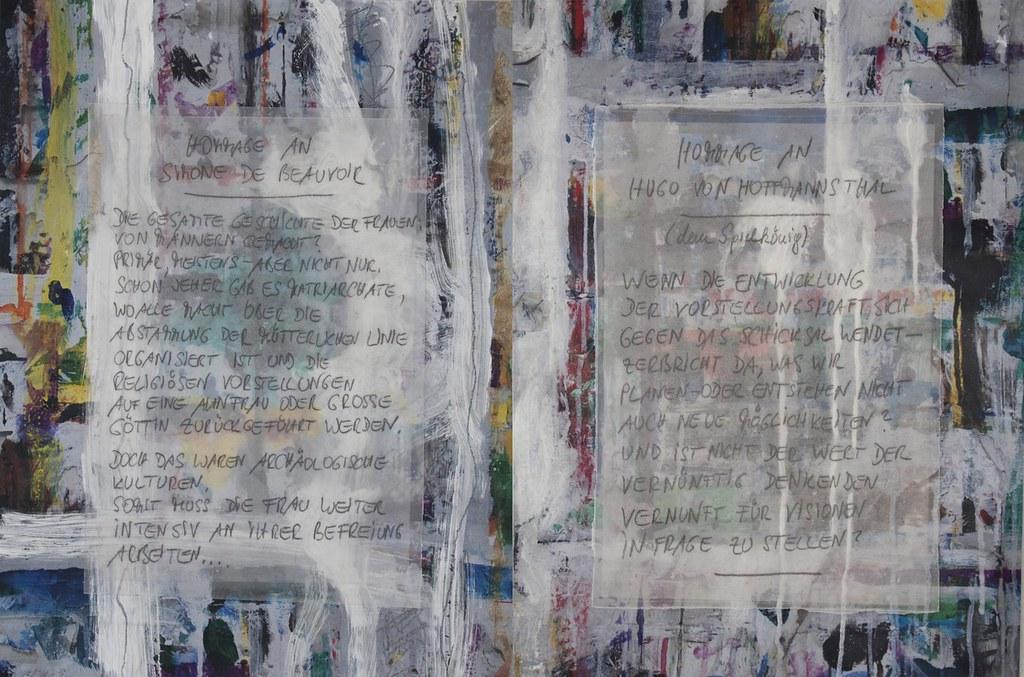 HOMMAGE AN
SIMONE DE BEAUVOIR
DIE GESAMTE GESCHICHTE DER FRAUEN
VON MÄNNERN GEMACHT?
PRIMÄR, MEISTENS - ABER NICHT NUR.
SCHON JEHER GAB ES MATRIARCHATE,
WO ALLE MACHT ÜBER DIE
ABSTAMMUNG DER MÜTTERLICHEN LINIE
ORGANISIERT IST UND DIE
RELIGIÖSEN VORSTELLUNGEN
AUF EINE AHNFRAU ODER GROSSE
GÖTTIN ZURÜCKGEFÜHRT WERDEN.
DOCH DAS WAREN ARCHÄOLOGISCHE
KULTUREN.
SONST MUSS DIE FRAU WEITER
INTENSIV AN IHRER BEFREIUNG
ARBEITEN....
HOMMAGE AN
HUGO VON HOFFMANNSTHAL
(dem Spielkönig)
WENN DIE ENTWICKLUNG
DER VORSTELLUNGSKRAFT SICH
GEGEN DAS SCHICKSAL WENDET -
ZERBRICHT DA, WAS WIR
PLANEN - ODER ENTSTEHEN NICHT
AUCH NEUE MÖGLICHKEITEN?
UND IST NICHT DER WERT DER
VERNÜNFTIG DENKENDEN
VERNUNFT FÜR VISIONEN
IN FRAGE ZU STELLEN?